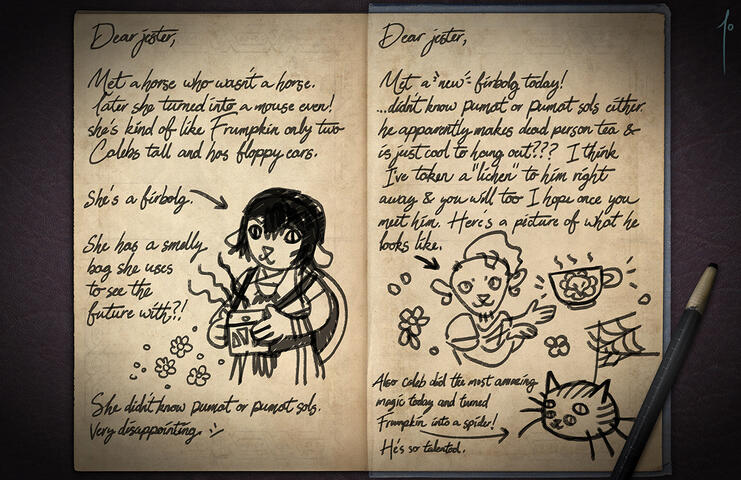 Dear jester,
Met a horse who wasn't a horse.
later she turned into a mouse even!
she's kind of like Frumpkin only two
Calebs tall and has floppy ears.
She's a firbolg.
She has a smelly
bag she uses
to see the
future with?!
She didn't know pumat or pumat sols.
Very disappointing.
Dear jester,
Met a "new" firbolg today!
...didn't know pumat or pumat sols either.
he apparently makes dead person tea &
is just cool to hang out??? I think
I've taken a "lichen" to him right
away & you will too I hope once you
meet him. Here's a picture of what he
looks like.
Also Caleb did the most amazing
magic today and turned
Frumpkin into a spider!
He's so talented.